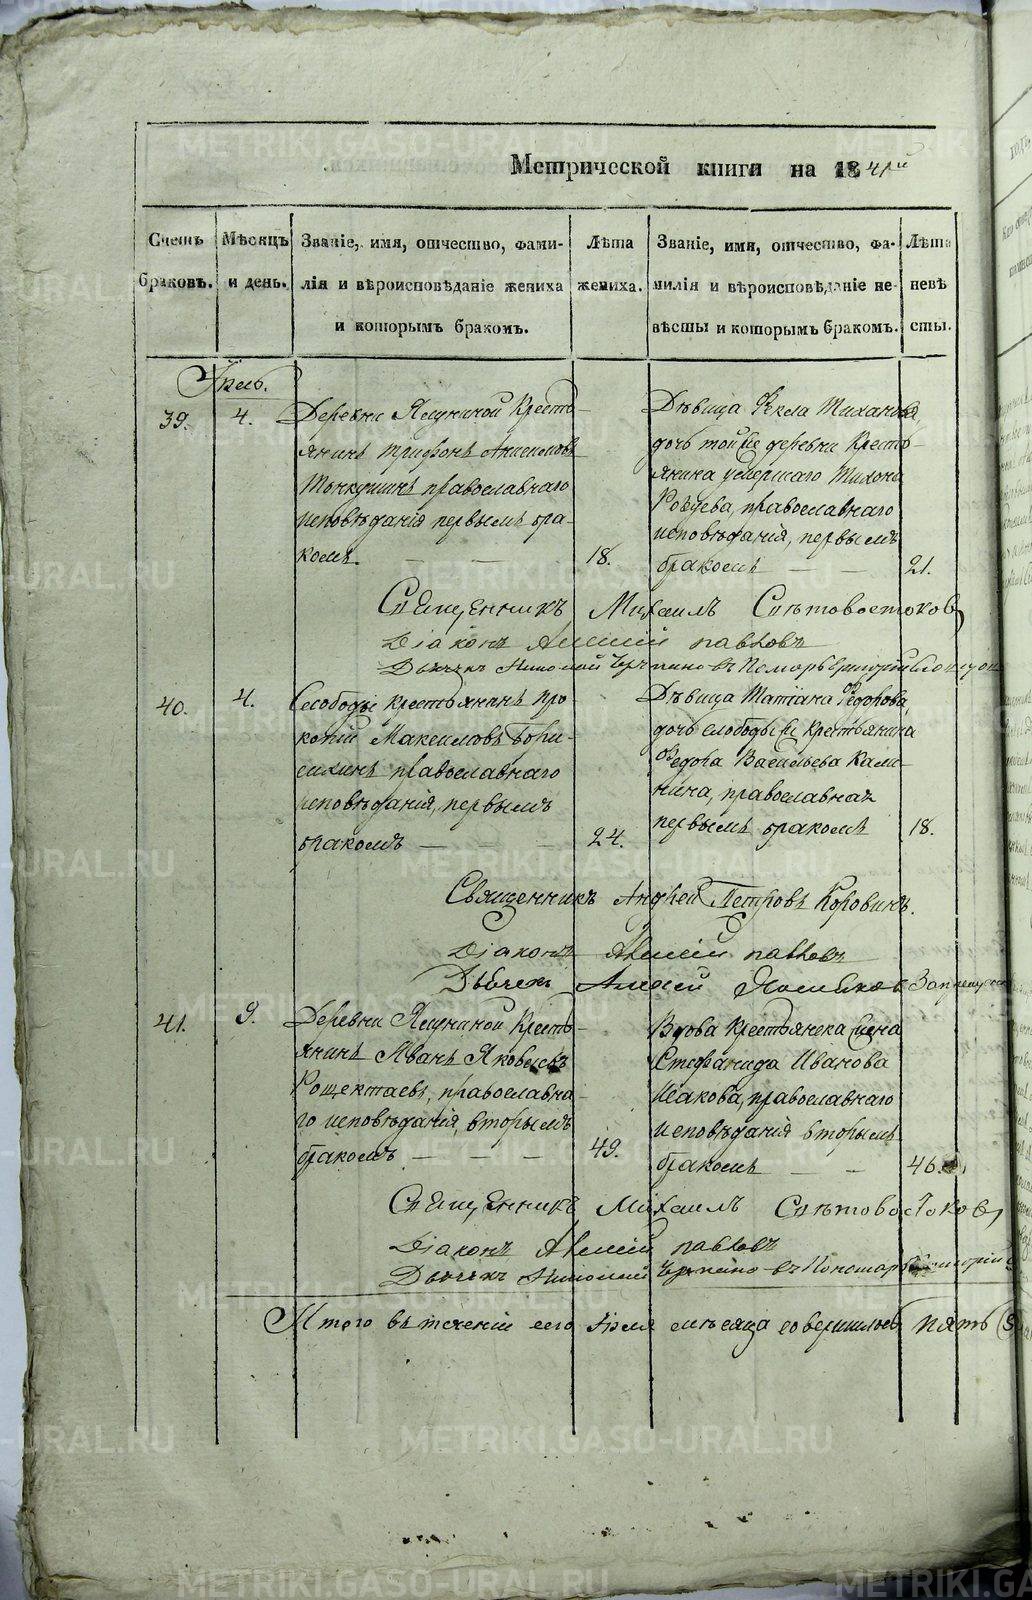 Метрической книги на 1841й
Счетъ браковъ.
Мѣсяцъ и день.
Званіе, имя, отчество, фами-
лія и вѣроисповѣданіе жениха
и которымъ бракомъ.
Лѣта жениха.
Званіе, имя, отчество, фа-
милія и вѣроисповѣданіе не-
вѣсты и которымъ бракомъ.
Лѣта невѣсты.
39. 4.
Деревни Ялуниной Кресть-
янинъ Трифонъ Анисимовъ
православнаго
исповѣданія первымъ бра-
комъ. 18.
Дѣвица Фекла Тиханова,
дочь той же деревни Кресть-
янина умершаго Тихона
православнаго
исповѣданія, первымъ
бракомъ 21.
Священникъ Михаилъ Свѣтовостоковъ
Діаконъ Алексій Павловъ
Дьячекъ Николай
40. 4.
Слободы крестьянинъ Про
копій Максимовъ Бори-
сихинъ православнаго
исповѣданія, первымъ
бракомъ 24.
Дѣвица Татіана Ѳедорова,
дочь слободы же Крестьянина
Ѳедора Васильева Кали-
нина, православнаго
первымъ бракомъ 18.
Священникъ Андрей Петровъ Коровинъ.
Діаконъ Алексій Павловъ
Дьячекъ Алексей
41. 9.
Деревни Ялуниной Кресть-
янинъ Иванъ Яковлевъ
Рощектаевъ, православна-
го исповѣданія, вторымъ
бракомъ 49.
Вдова Крестьянска жена
Стефанида Иванова
Исакова, православнаго
исповѣданія вторымъ
бракомъ 46.
Священникъ Михаилъ Свѣтовостоковъ
Діаконъ Алексій Павловъ
Дьячекъ Николай
Итого въ теченіи сего Іюля месяца совершилось пять (5
METRIKI.GASO-URAL.RU